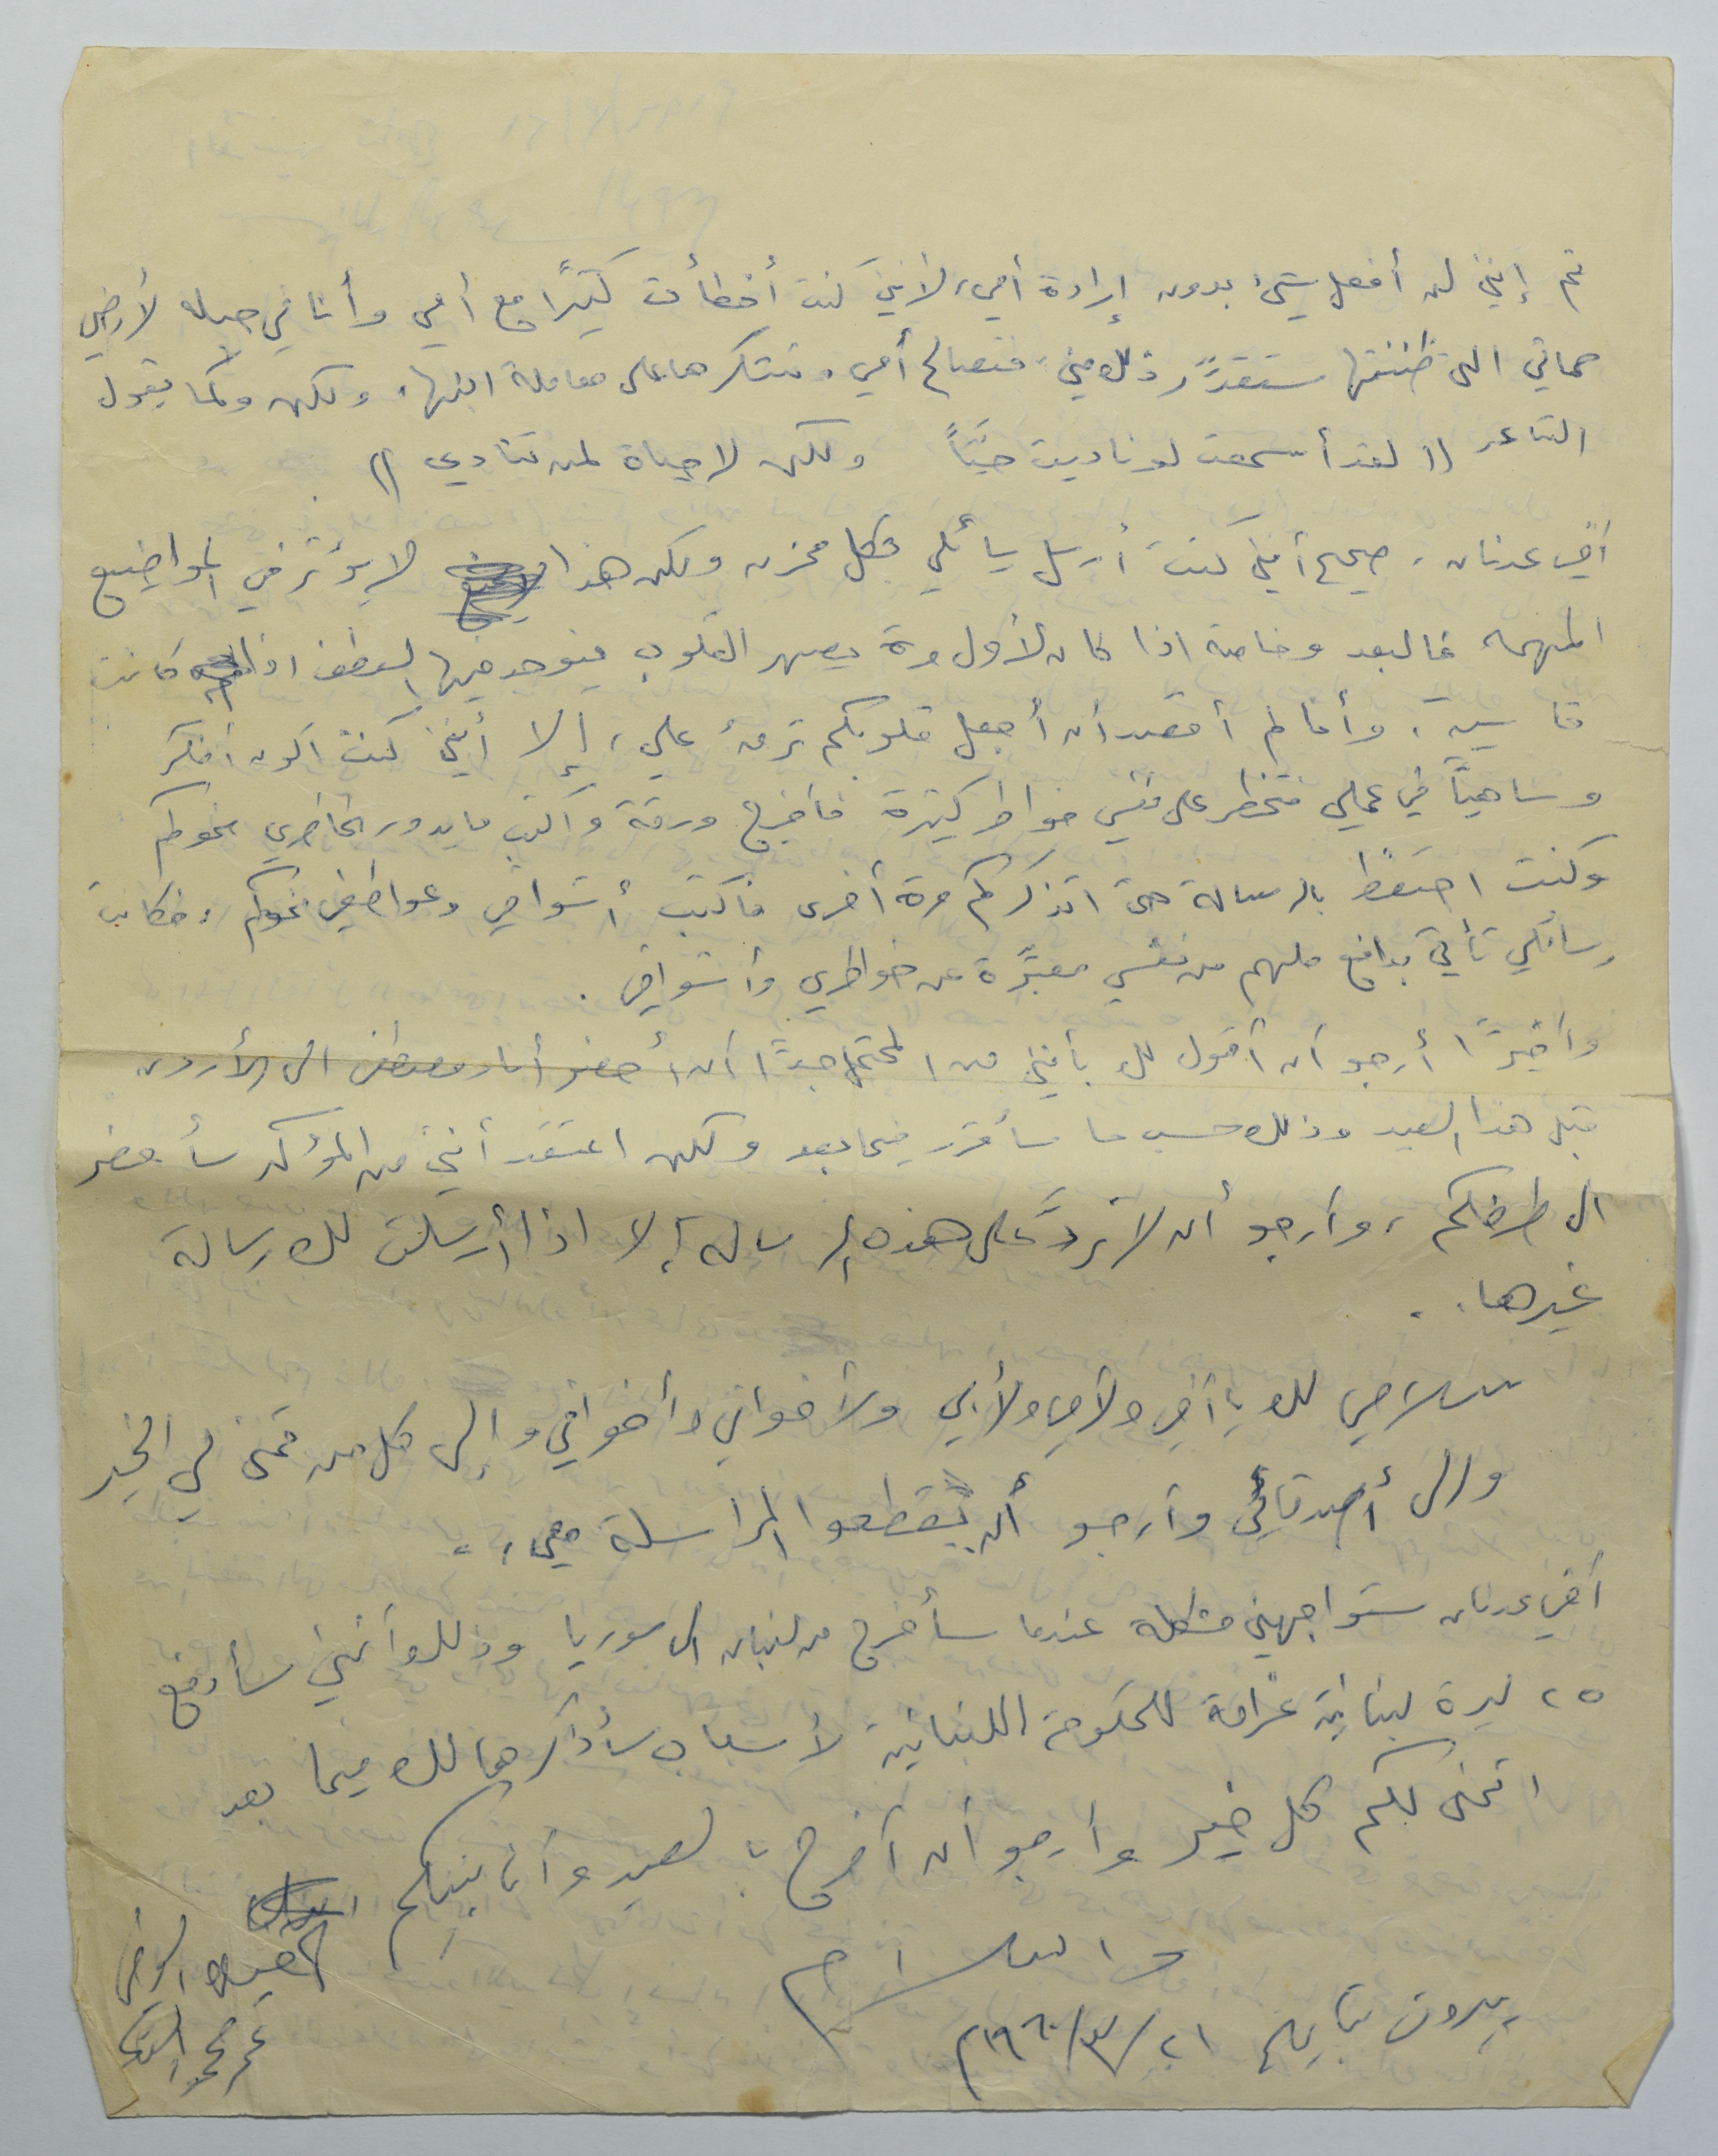 ثم إنني لن أفعل شيئ بدون إرادة أمي، لأنني كنت أخطأت كثيرًا مع أمي وأنا في لأرضي
حماتي التي ظننتها ستقدّر ذلك مني، فتصالح أمي وتشكرها على معاملة ابنها، ولكن وكما يقول
الشاعر (( لقد أسمعت لو ناديت حيّاً ولكن لا حياة لمن تنادي ))
أخي عدنان، صحيح أنني كنت أرسل رسائلي بشكل محزن ولكن هذا لا يؤثر في المواضيع
المهمه فالبعد وخاصة اذا كان لأول مرة يصهر القلوب فيوجد فيها العطف اذا كانت
قاسية، وأنا لم أقصد أن أجعل قلوبكم ترقّ علي، إلا أنني كنت أكون أفكر
وساهيًا في عملي فتخطر على نفسي خواطر كثيرة فأخرج ورقة وأكتب ما يدور بخاطري نحوكم
وكنت احتفظ بالرسالة حتى اتذكركم مرة أخرى فاكتب أشواقي وعواطفي نحوكم، فكانت
رسائلي تأتي بدافع ملهم من نفسي معبّرة عن خواطري وأشواقي.
وأخيرًا أرجو أن أقول لك بأنني من المحتمل جدًا أن أحضر أنا ومصطفى الى الأردن
قبل هذا العيد وذلك حسب ما سأقرر فيما بعد ولكن اعتقد أنني من المؤكد سأحضر
الى طرفكم، وأرجو أن لا تردّ على هذه الرسالة إلا اذا أرسلت لك رسالة
غيرها..
سلامي لك يا أخي ولأمي ولأبي ولأخواني وأخواتي وإلى كل من تمنى لي الخير
والى أصدقائي وأرجو أن يقطعوا المراسلة معي..
أخي عدنان ستواجهني مشكلة عندما سأخرج من لبنان الى سوريا وذلك وأنني سأدفع
٢٥ ليرة لبنانية غرامة للحكومة اللبنانية لأسباب سأذكرها لك فيما بعد
اتمنى لكم كل خير وأرجو أن أفرح بالعيد وأنا بينكم
والسلام
بيروت بتاريخ ٢١/٣/١٩٦٠م